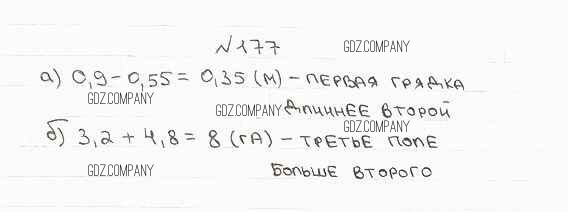 №177
GDZ.COMPANY
а) 0,9 - 0,55 = 0,35 (м) - первая грядка
GDZ.COMPANY
GDZ.COMPANY
длиннее второй
GDZ.COMPANY
б) 3,2 + 4,8 = 8 (га) - третье поле
GDZ.COMPANY
больше второго